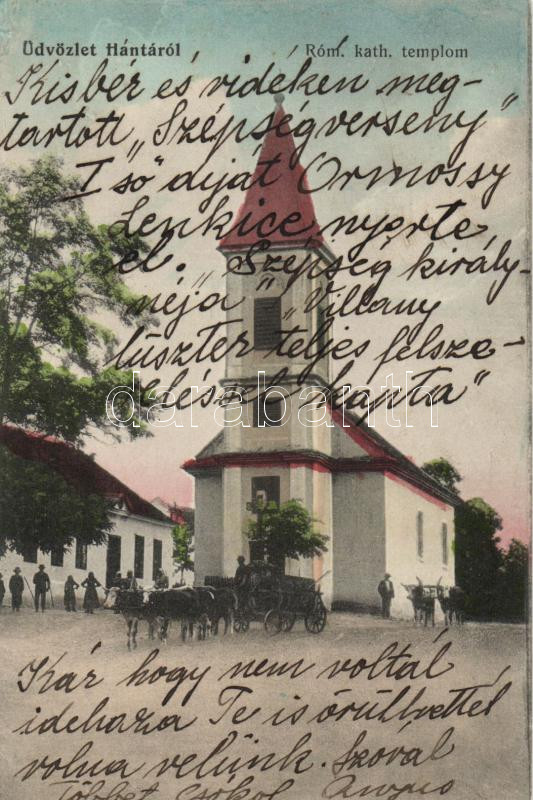 Üdvözlet Hántáról
Róm. kath. templom
Kisbér és vidéken meg-
tartott „Szépségverseny"
I ső" díját Ormossy
Lenkice nyerte
el. „Szépség király-
néja" „Villany
lüszter teljes felsze-
relését kapta"
darabanth
Kár hogy nem voltál
idehaza Te is örülhettel
volna velünk. Szóval
Többet Csókol